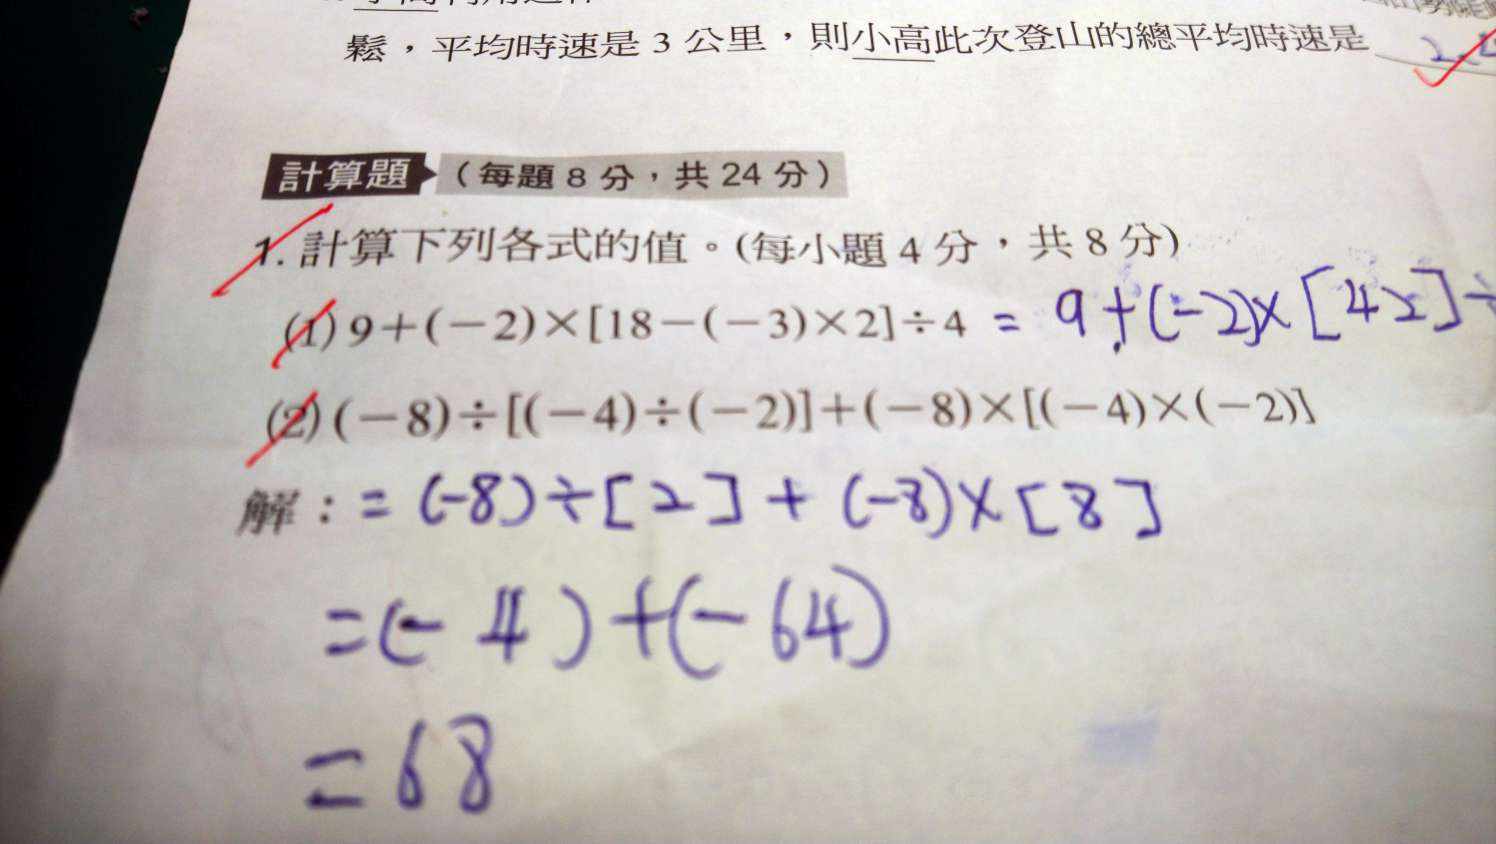 鬆，平均時速是 3 公里，則小高此次登山的總平均時速是
計算題 （每題 8 分，共 24 分）
1. 計算下列各式的值。(每小題 4 分，共 8 分)
(1) 9＋(－2)×[18－(－3)×2]÷4 = 9+(-2)×[42]÷
(2) (－8)÷[(－4)÷(－2)]＋(－8)×[(－4)×(－2)]
解：= (-8)÷[2]+(-8)×[8]
=(-4)+(-64)
=68